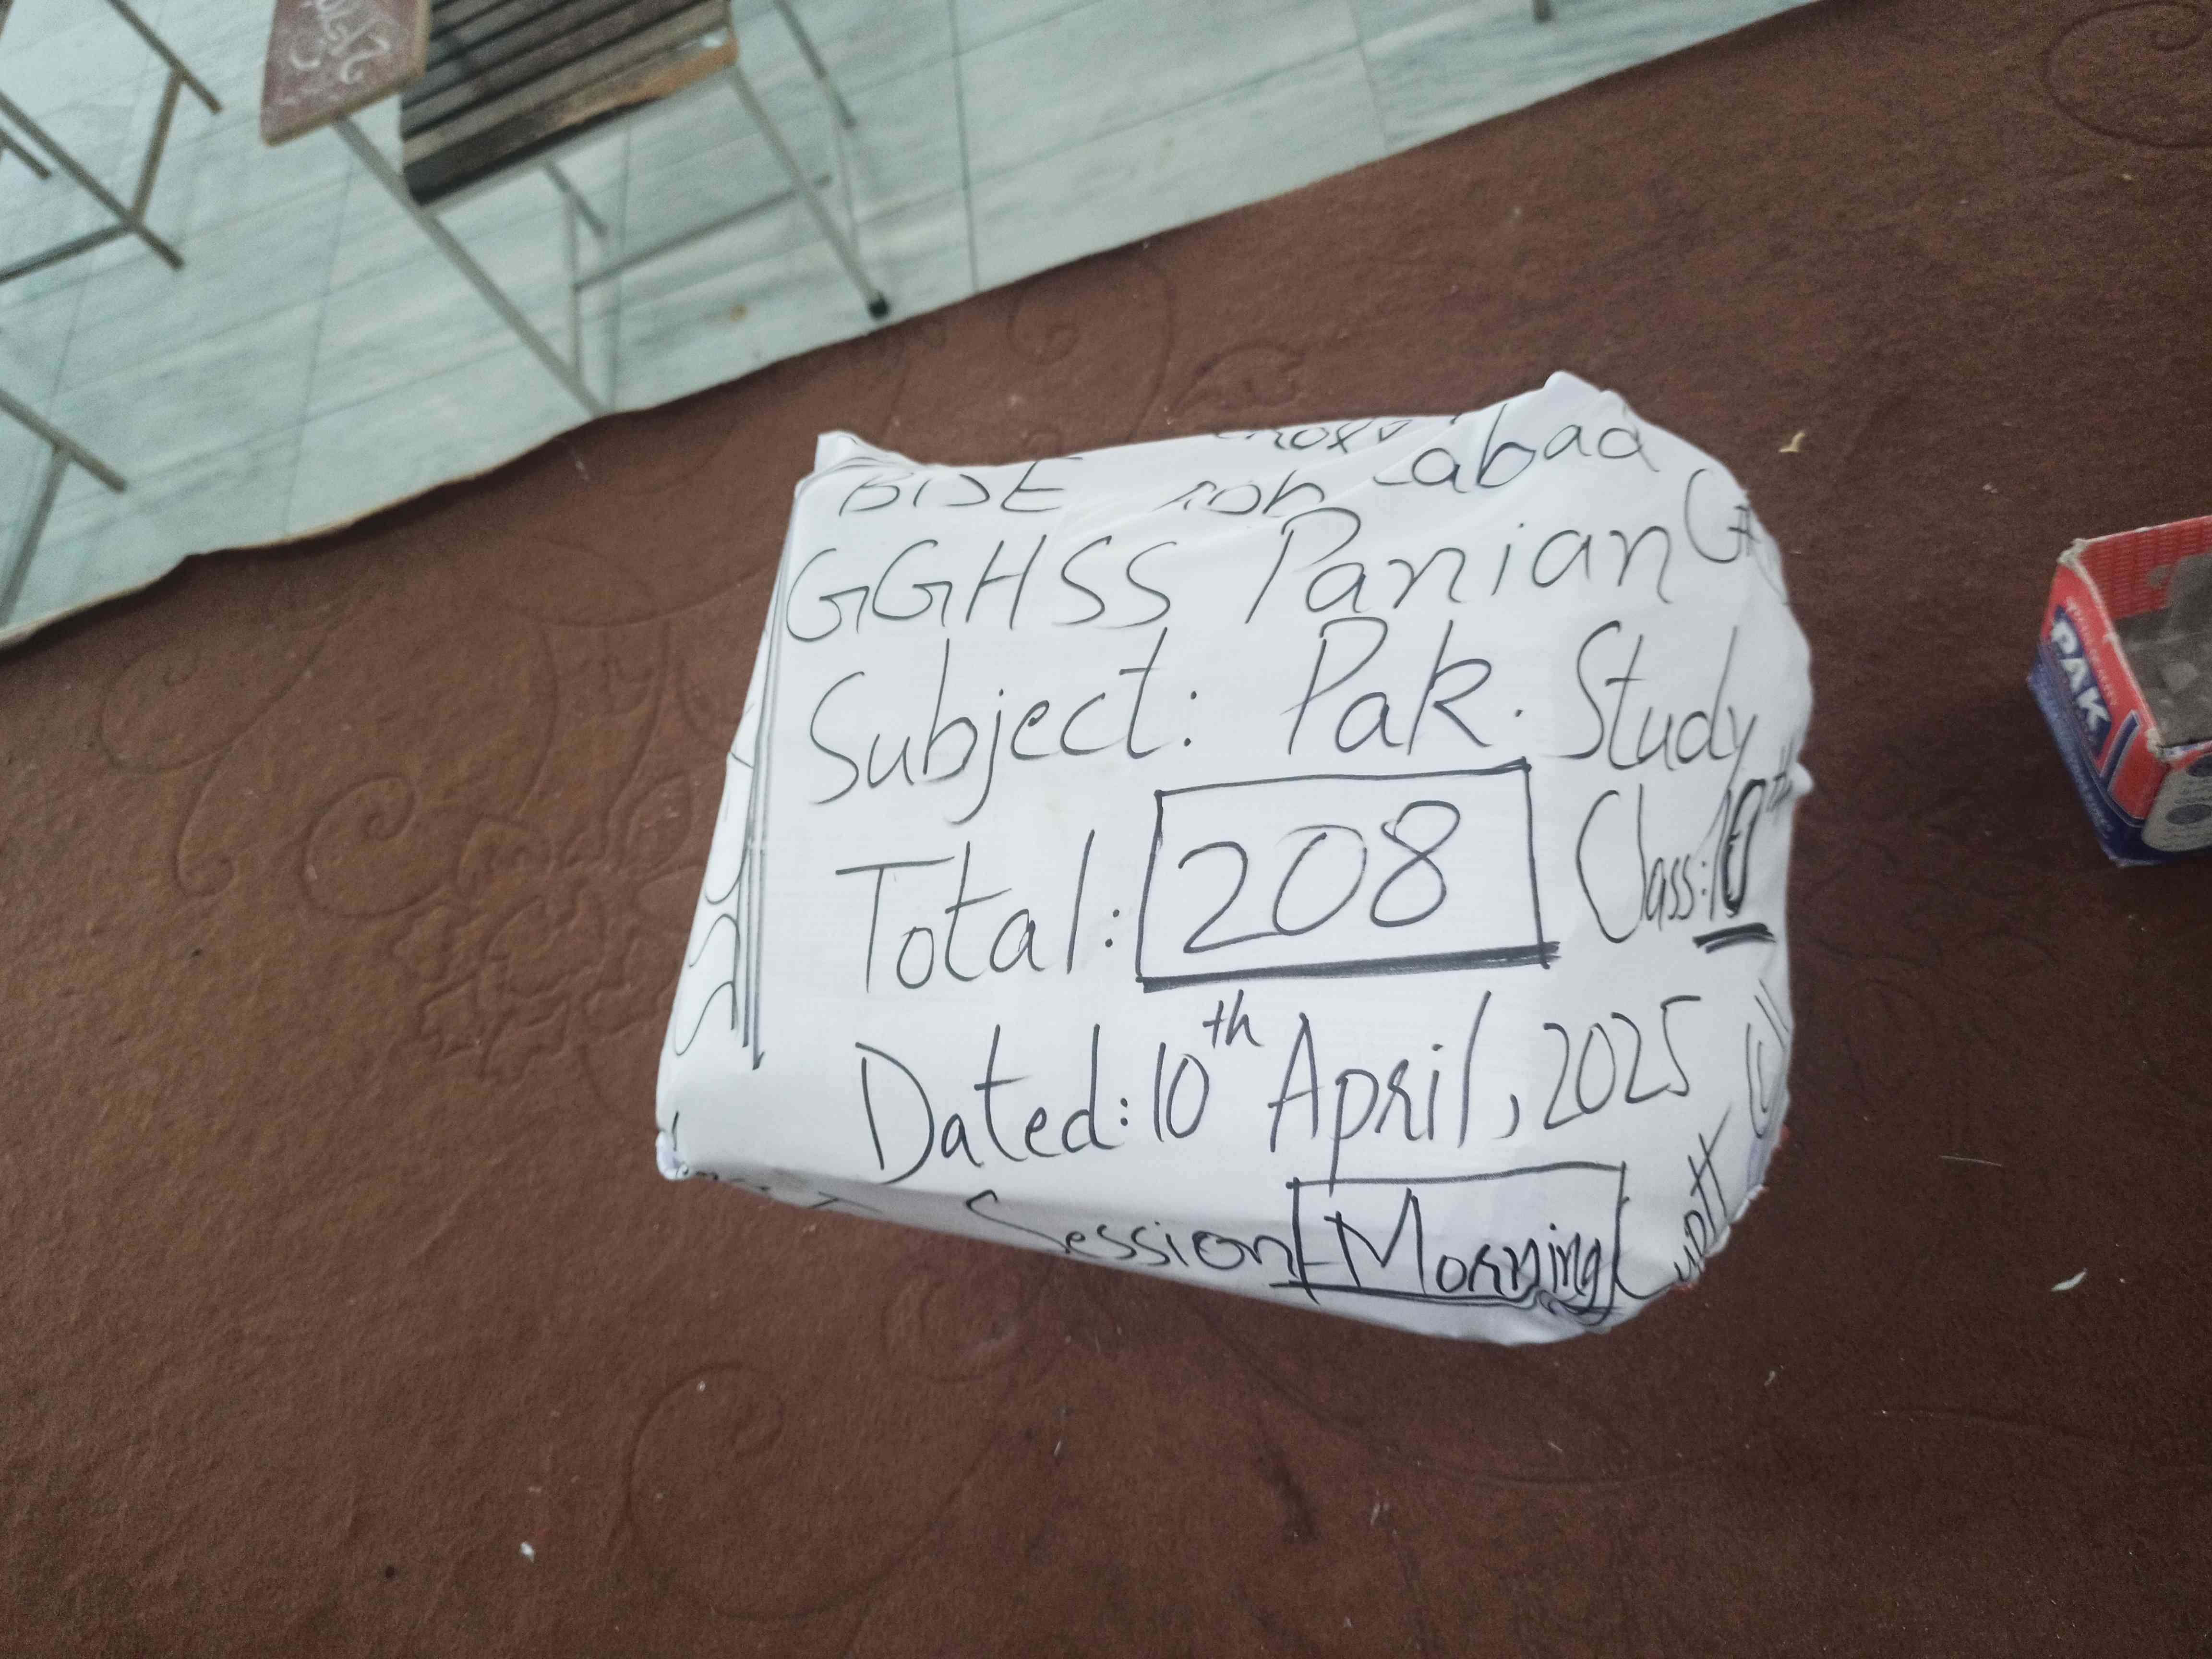 BISE Abbottabad
GGHSS Panian
Subject: Pak. Study
Total: 208 Class: 10th
Dated: 10th April, 2025
Session Morning
PAK